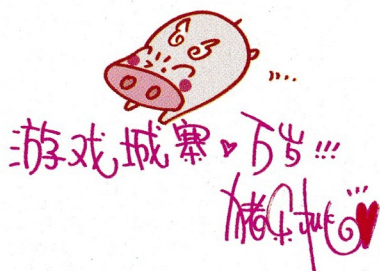 游戏城寨♥万岁!!!
猪乐桃